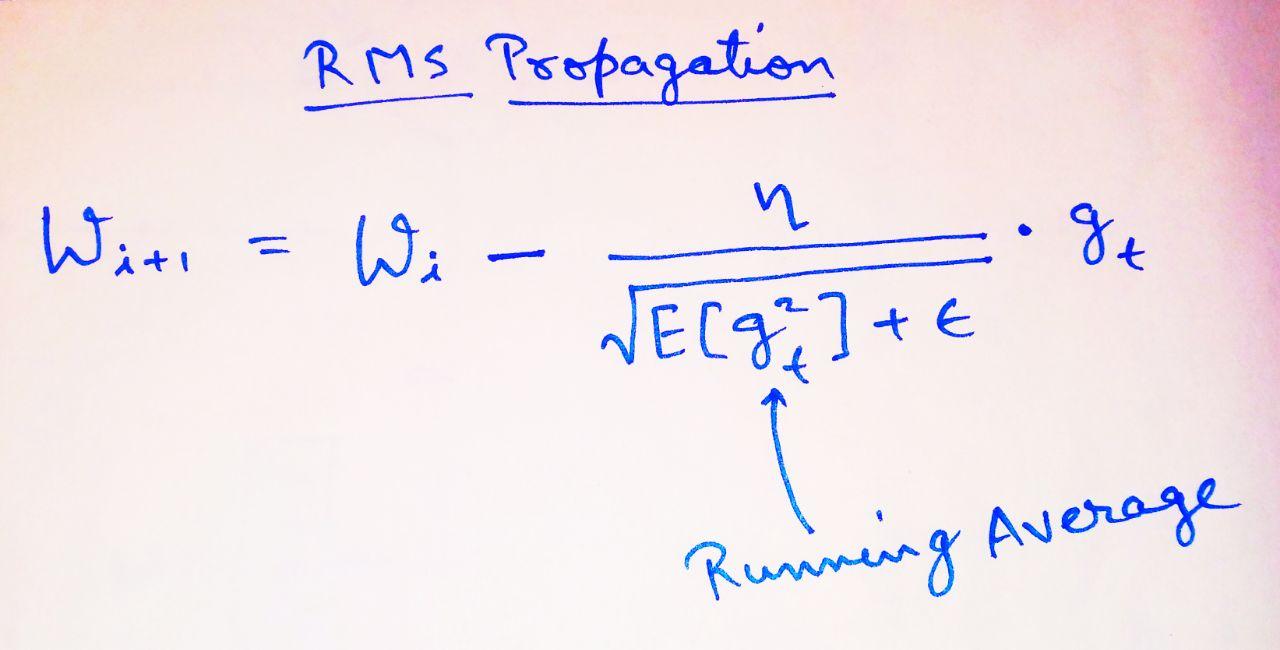 RMS Propagation
W_{i+1} = W_i - \frac{η}{\sqrt{E[g_t^2] + ϵ}} · g_t
Running Average